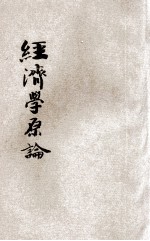 經濟學原論